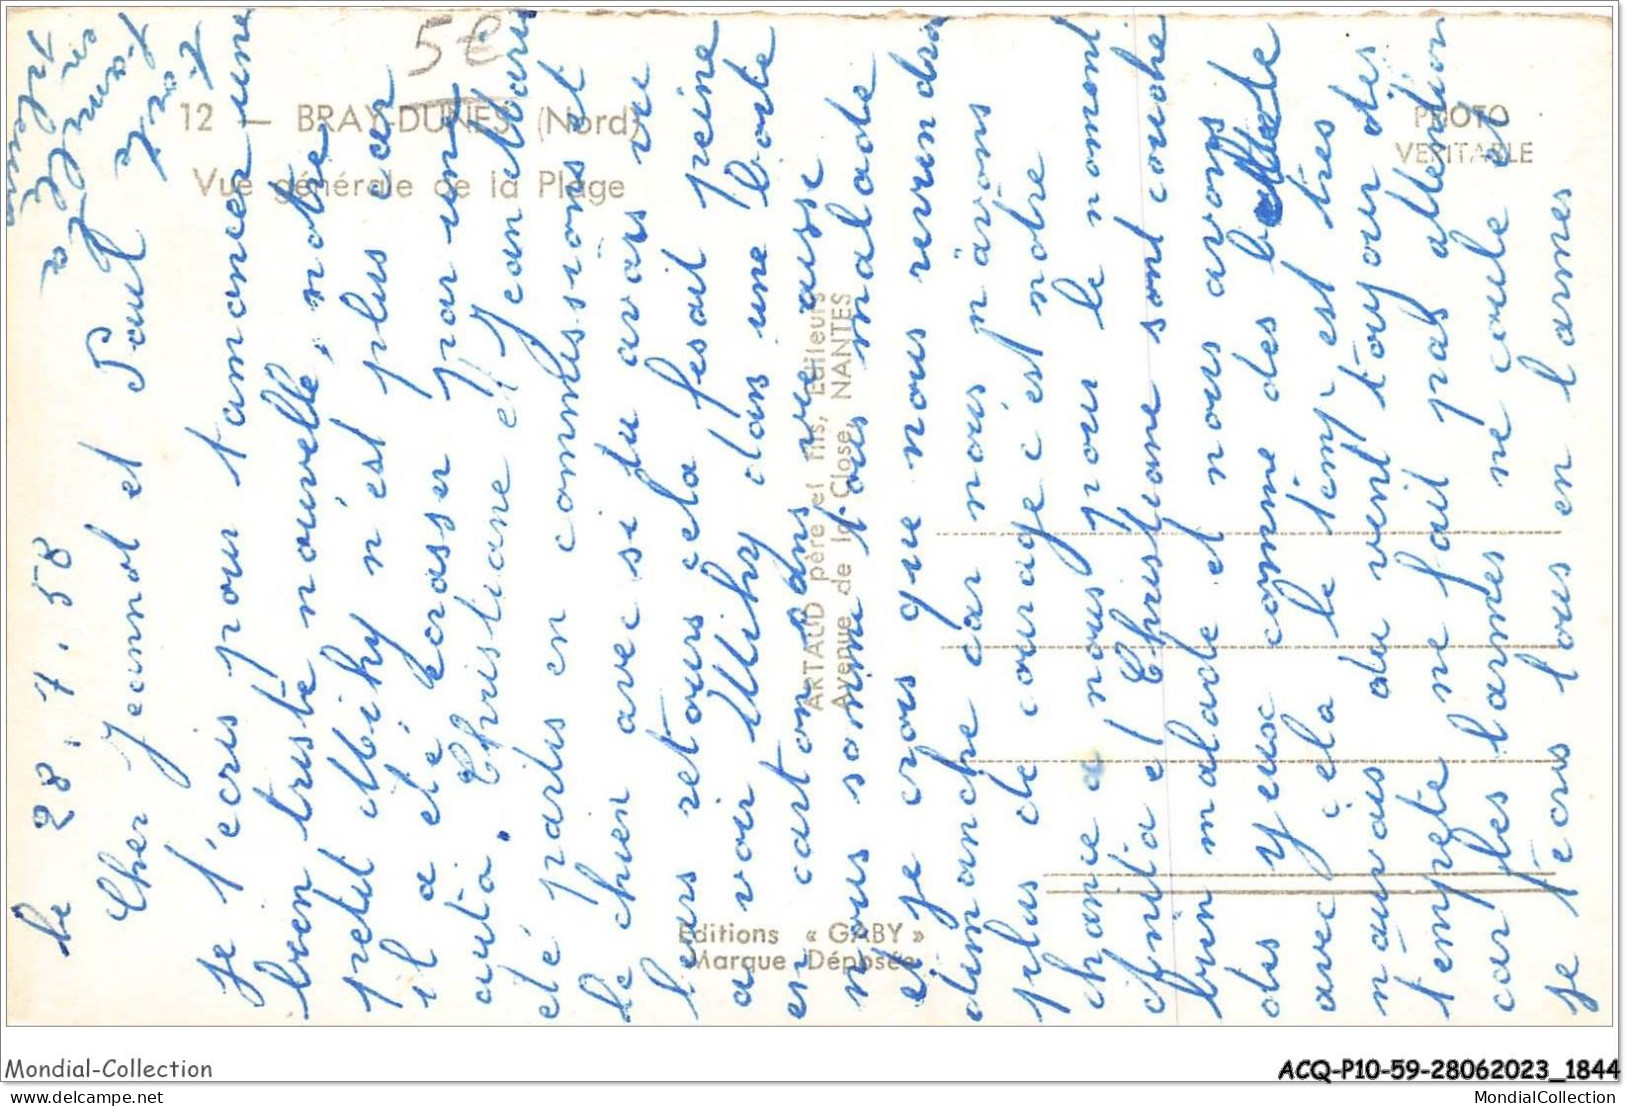 le 28.7.58
Cher Jeannot et Paul
je t'ecris pour t'anoncer une
bien triste nouvelle, notre
petit Mihy n'est plus car
il a eté ecraser par une
auto. Christiane et Jean Marie
eté partis en commissions et
le chien avec si tu avais vu
leurs retours cela fesait peine
a voir Mihy dans une boite
en carton
nous somme tous malade
et je crois que nous reviendra
dimanche car nous n'avons
plus de courage c'est notre
chance a nous pour le nomont
Anita e Christiane sont couche
bien malade et nous avons
des yeux comme des
avec cela le temp est tres
mauvais du vent toujour des
tempete ne fait pas attention
car les larmes ne coule et
je t'ecris tous en larmes
12 — BRAY-DUNES (Nord)
Vue générale de la Plage
5€
PHOTO
VERITABLE
ARTAUD père et fils, Editeurs
Avenue de la Close, NANTES
Editions « GABY »
Marque Déposée
Mondial-Collection
ACQ-P10-59-28062023_1844
www.mondial-collection.com
MondialCollection